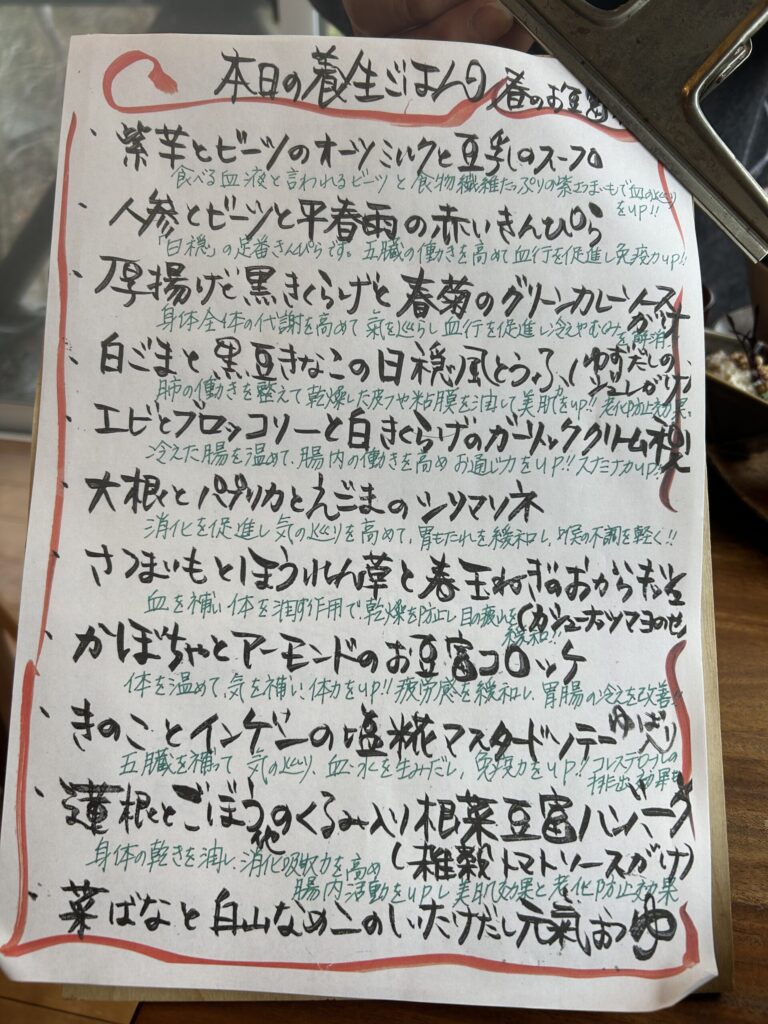 本日の養生ごはん 春のお豆富
紫芋とビーツのオーツミルクと豆乳のスープ
食べる血液と言われるビーツと食物繊維たっぷりの紫さつまいもで血の巡り
をup!!
人参とビーツと平春雨の赤いきんぴら
「白穏」の定番きんぴらです。五臓の働きを高めて血行を促進し免疫力up!!
厚揚げと黒きくらげと春菊のグリーンカレーソース
がけ
身体全体の代謝を高めて氣を巡らし血行を促進し冷えやむくみ
を解消!!
白ごまと黒豆きなこの白穏風とうふ(ゆずだしの
ジュレがけ)
肺の働きを整えて乾燥した皮フや粘膜を潤して美肌をup!! 老化防止効果
エビとブロッコリーと白きくらげのガーリッククリーム煮
冷えた腸を温めて、腸内の働きを高めお通じ力をup!! スタミナ力up!!
大根とパプリカとえごまのシリマリネ
消化を促進し気の巡りを高めて、胃もたれを緩和し、喉の不調を軽く!!
さつまいもとほうれん草と春玉ねぎのおからキッシュ
(カシューナッツマヨのせ)
血を補い体を潤す作用で、乾燥を防止し目の疲れを
緩和!!
かぼちゃとアーモンドのお豆富コロッケ
体を温めて、気を補い、体力をup!! 疲労感を緩和し、胃腸の冷えを改善!!
きのことインゲンの塩糀マスタードソテー ゆば入り
五臓を補って気の巡り、血・水を生みだし、免疫力をup!! コレステロールの
排出効果も
蓮根とごぼうのくるみ入り根菜豆富ハンバーグ
(雑穀トマトソースがけ)
身体の乾きを潤し、消化吸収力を高め
腸内活動をupし美肌効果と老化防止効果
菜ばなと白山なめこのしいたけだし元氣おつゆ